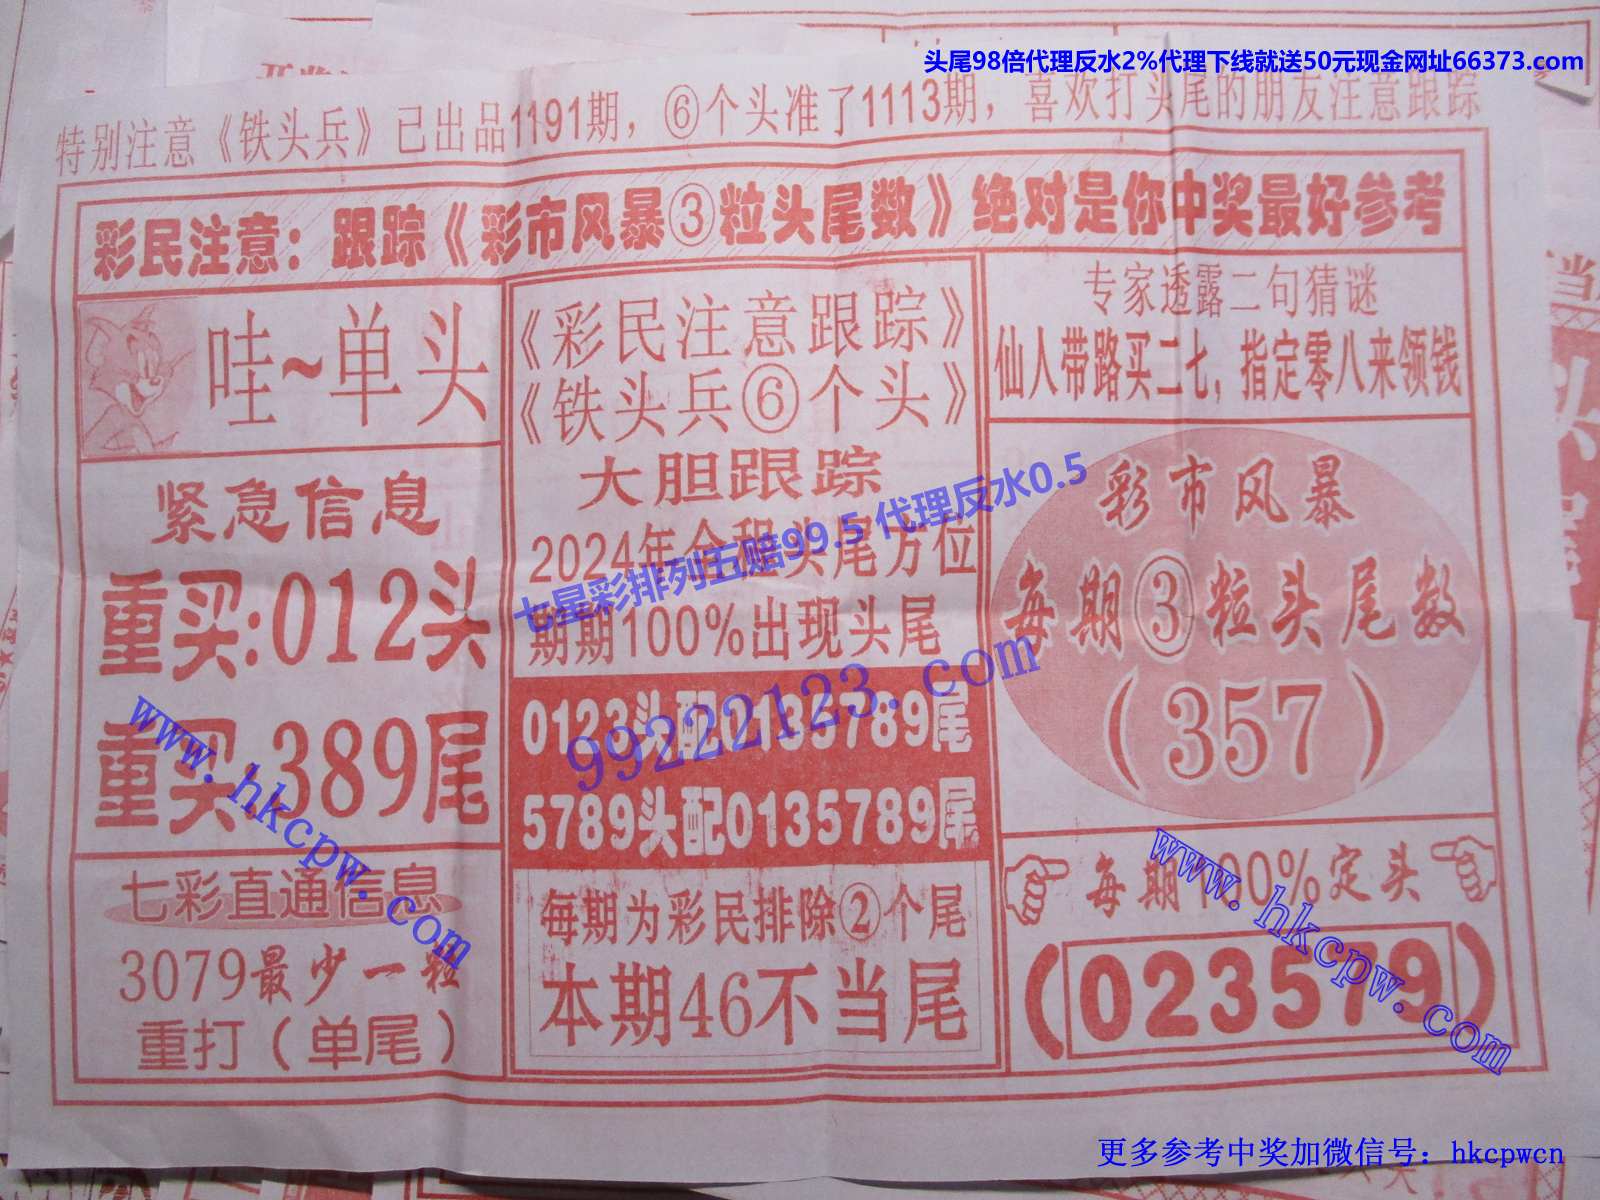 头尾98倍代理反水2%代理下线就送50元现金网址66373.com
特别注意《铁头兵》已出品1191期，⑥个头准了1113期，喜欢打头尾的朋友注意跟踪
彩民注意：跟踪《彩市风暴③粒头尾数》绝对是你中奖最好参考
哇~单头
紧急信息
重买:012头
重买:389尾
七彩直通信息
3079最少一粒
重打（单尾）
《彩民注意跟踪》
《铁头兵⑥个头》
大胆跟踪
2024年全程头尾方位
期期100%出现头尾
0123头配0135789尾
5789头配0135789尾
每期为彩民排除②个尾
本期46不当尾
专家透露二句猜谜
仙人带路买二七，指定零八来领钱
彩市风暴
每期③粒头尾数
（357）
每期100%定头
（023579）
七星彩排列五赔99.5 代理反水0.5
99222123.com
www.hkcpw.com
www.hkcpw.com
更多参考中奖加微信号：hkcpwcn